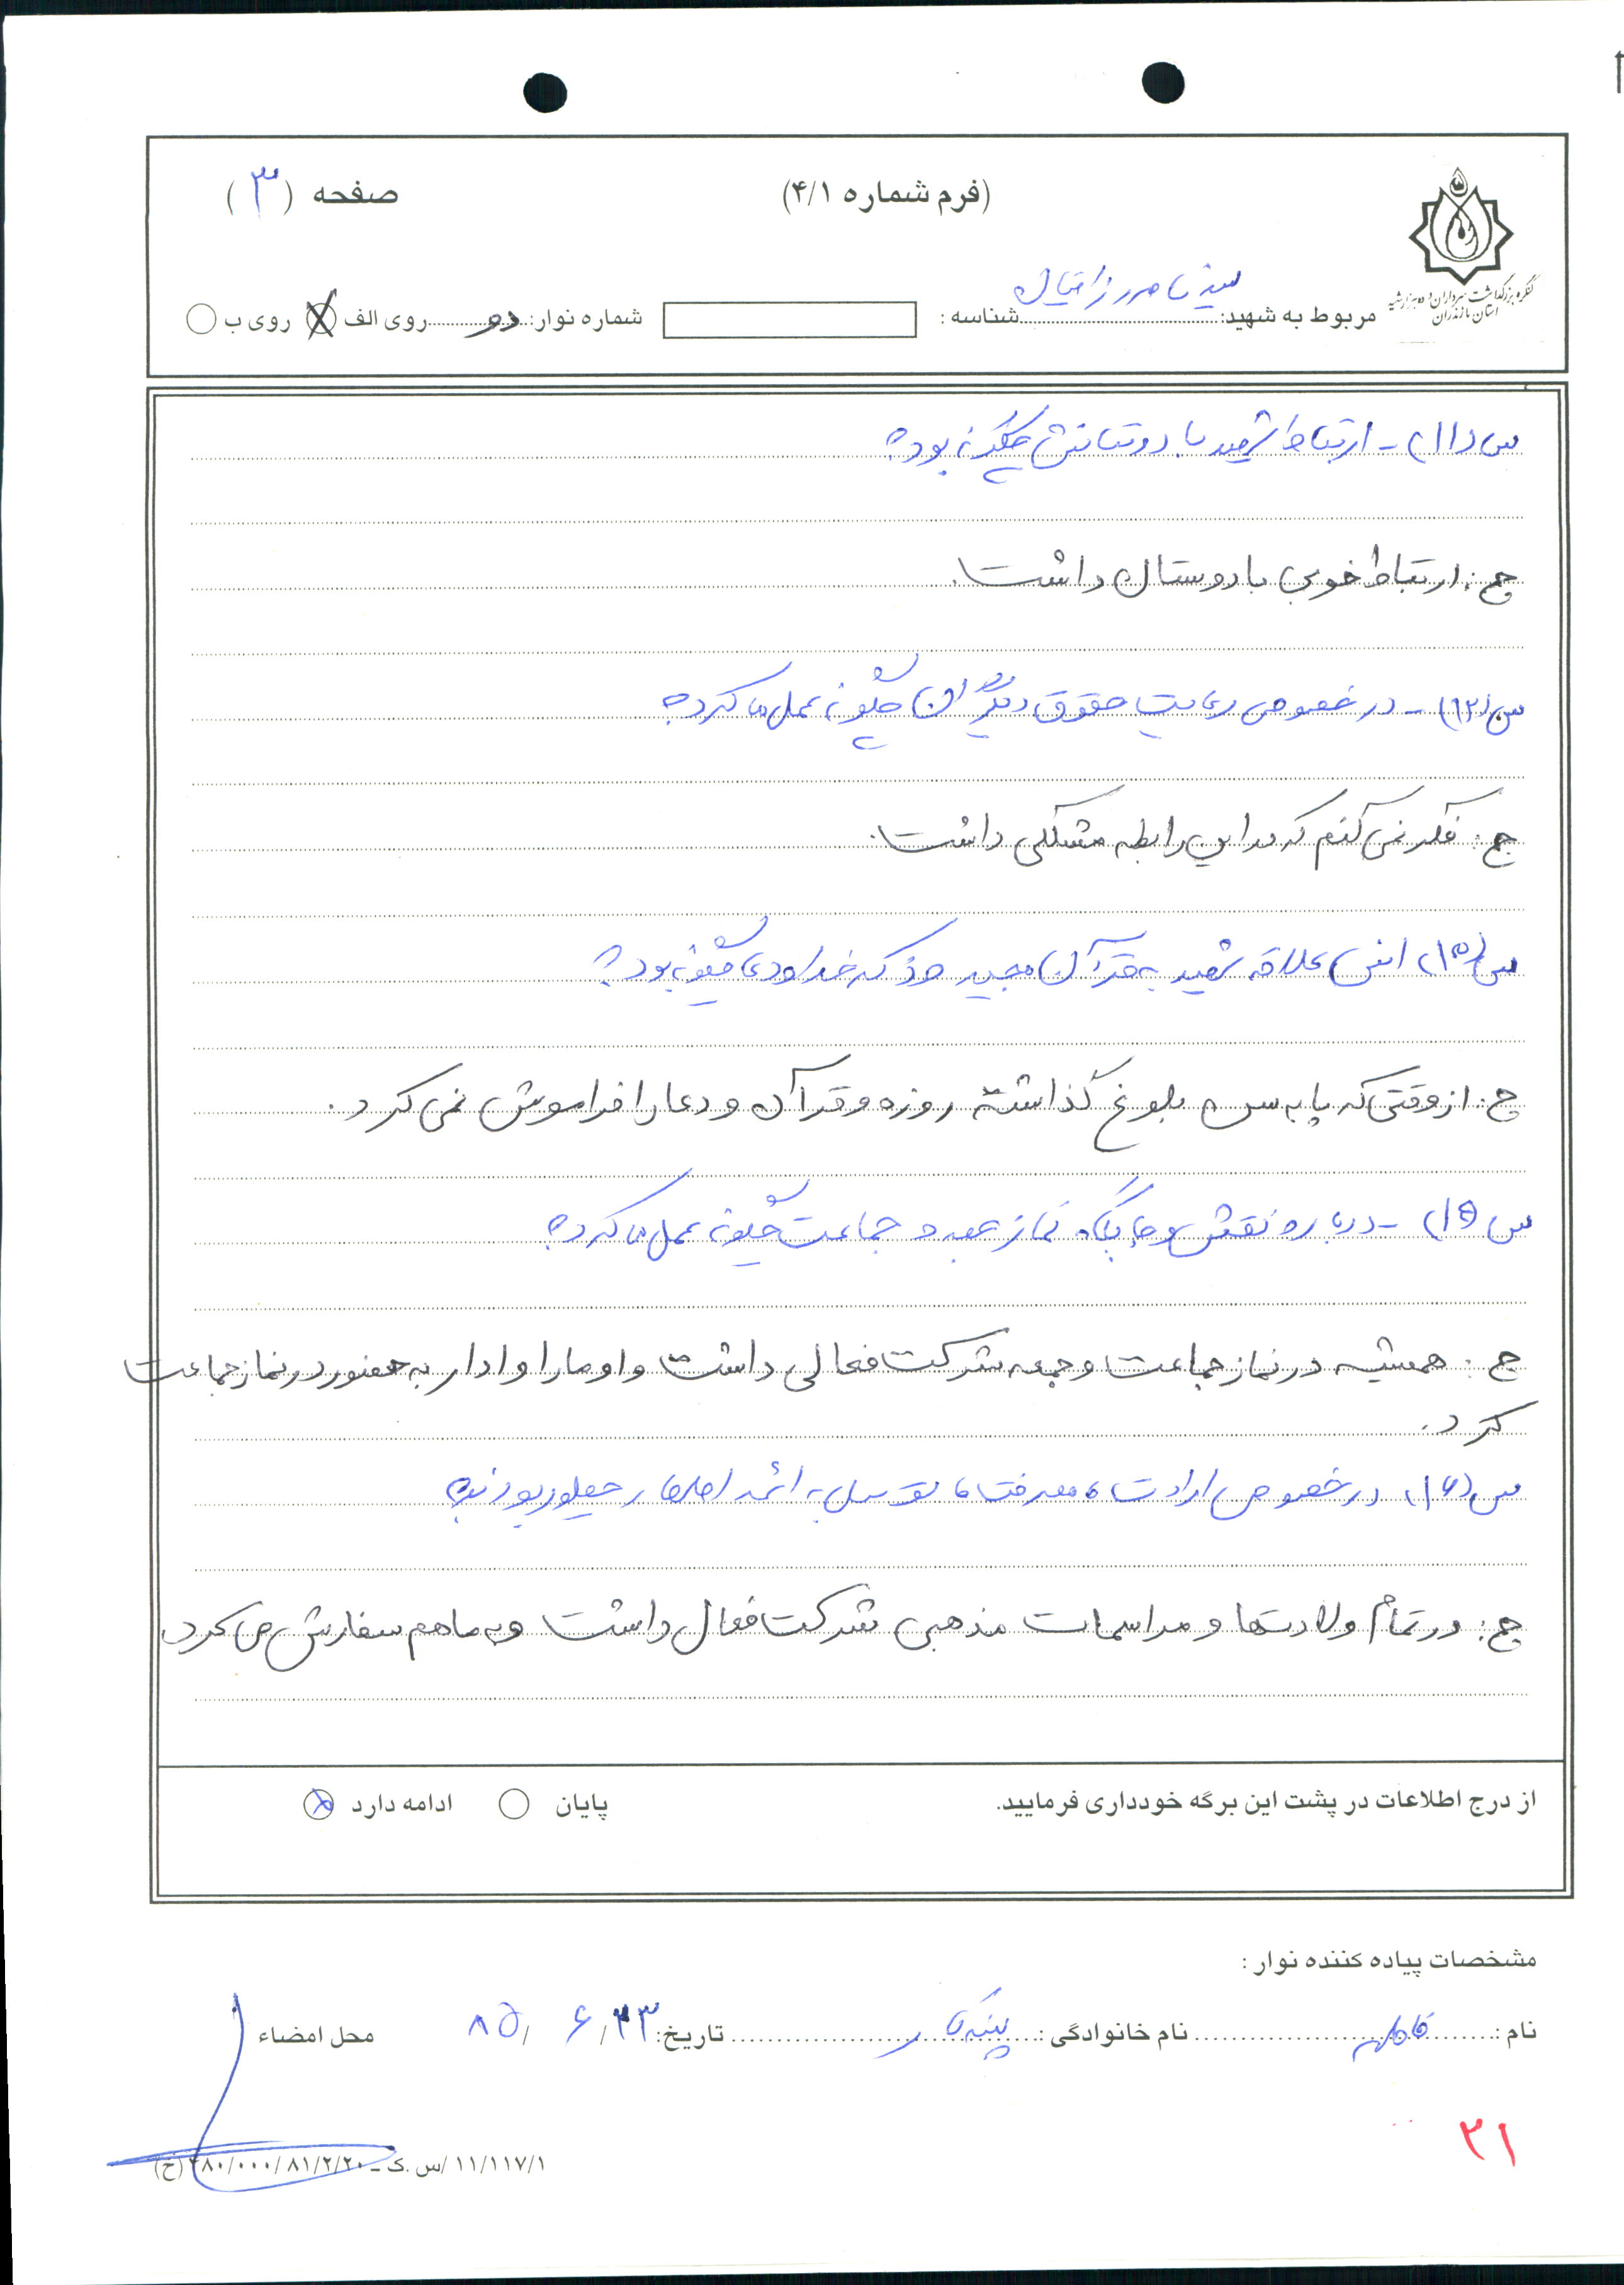 (فرم شماره ۴/۱)
صفحه (۳)
کنگره بزرگداشت سرداران و ده هزار شهید
استان مازندران
مربوط به شهید: شناسه :
شماره نوار: دو روی الف روی ب
س(۱۱) - ارتباط شهید با دوستانش چگونه بود؟
ج: ارتباط خوبی با دوستان داشت.
س(۱۲) - در خصوص رعایت حقوق دیگران چگونه عمل می کرد؟
ج: فکر نمی کنم که در این رابطه مشکلی داشت.
س( انس علاقه شهید به قرآن مجید و ذکر خدا و دعا چگونه بود؟
ج: از وقتی که پا به سن بلوغ گذاشته روزه و قرآن و دعا را فراموش نمی کرد.
س(۱۵) - درباره نقش و جایگاه نماز جمعه و جماعت چگونه عمل می کرد؟
ج: همیشه در نماز جماعت و جمعه شرکت فعالی داشت و او ما را وادار به حضور در نماز جماعت
کرد.
س(۱۶) در خصوص ارادت، معرفت، توسل به ائمه اطهار چطور بودند؟
ج: در تمام ولادتها و مراسمات مذهبی شرکت فعال داشت و به ما هم سفارش می کرد.
از درج اطلاعات در پشت این برگه خودداری فرمایید.
پایان ادامه دارد
مشخصات پیاده کننده نوار :
نام : نام خانوادگی : تاریخ: ۸۵/ ۶/ ۲۳ محل امضاء
۳۱
۱۱/۱۱۷/۱ /س.ک - ۸۱/۲/۲۰/ ۰۰۰/ ۲۸۰(خ)